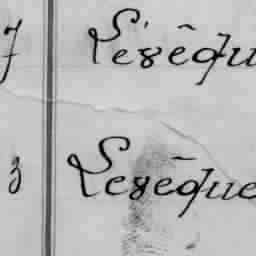 7 L'ezêqu
3 Lezêque